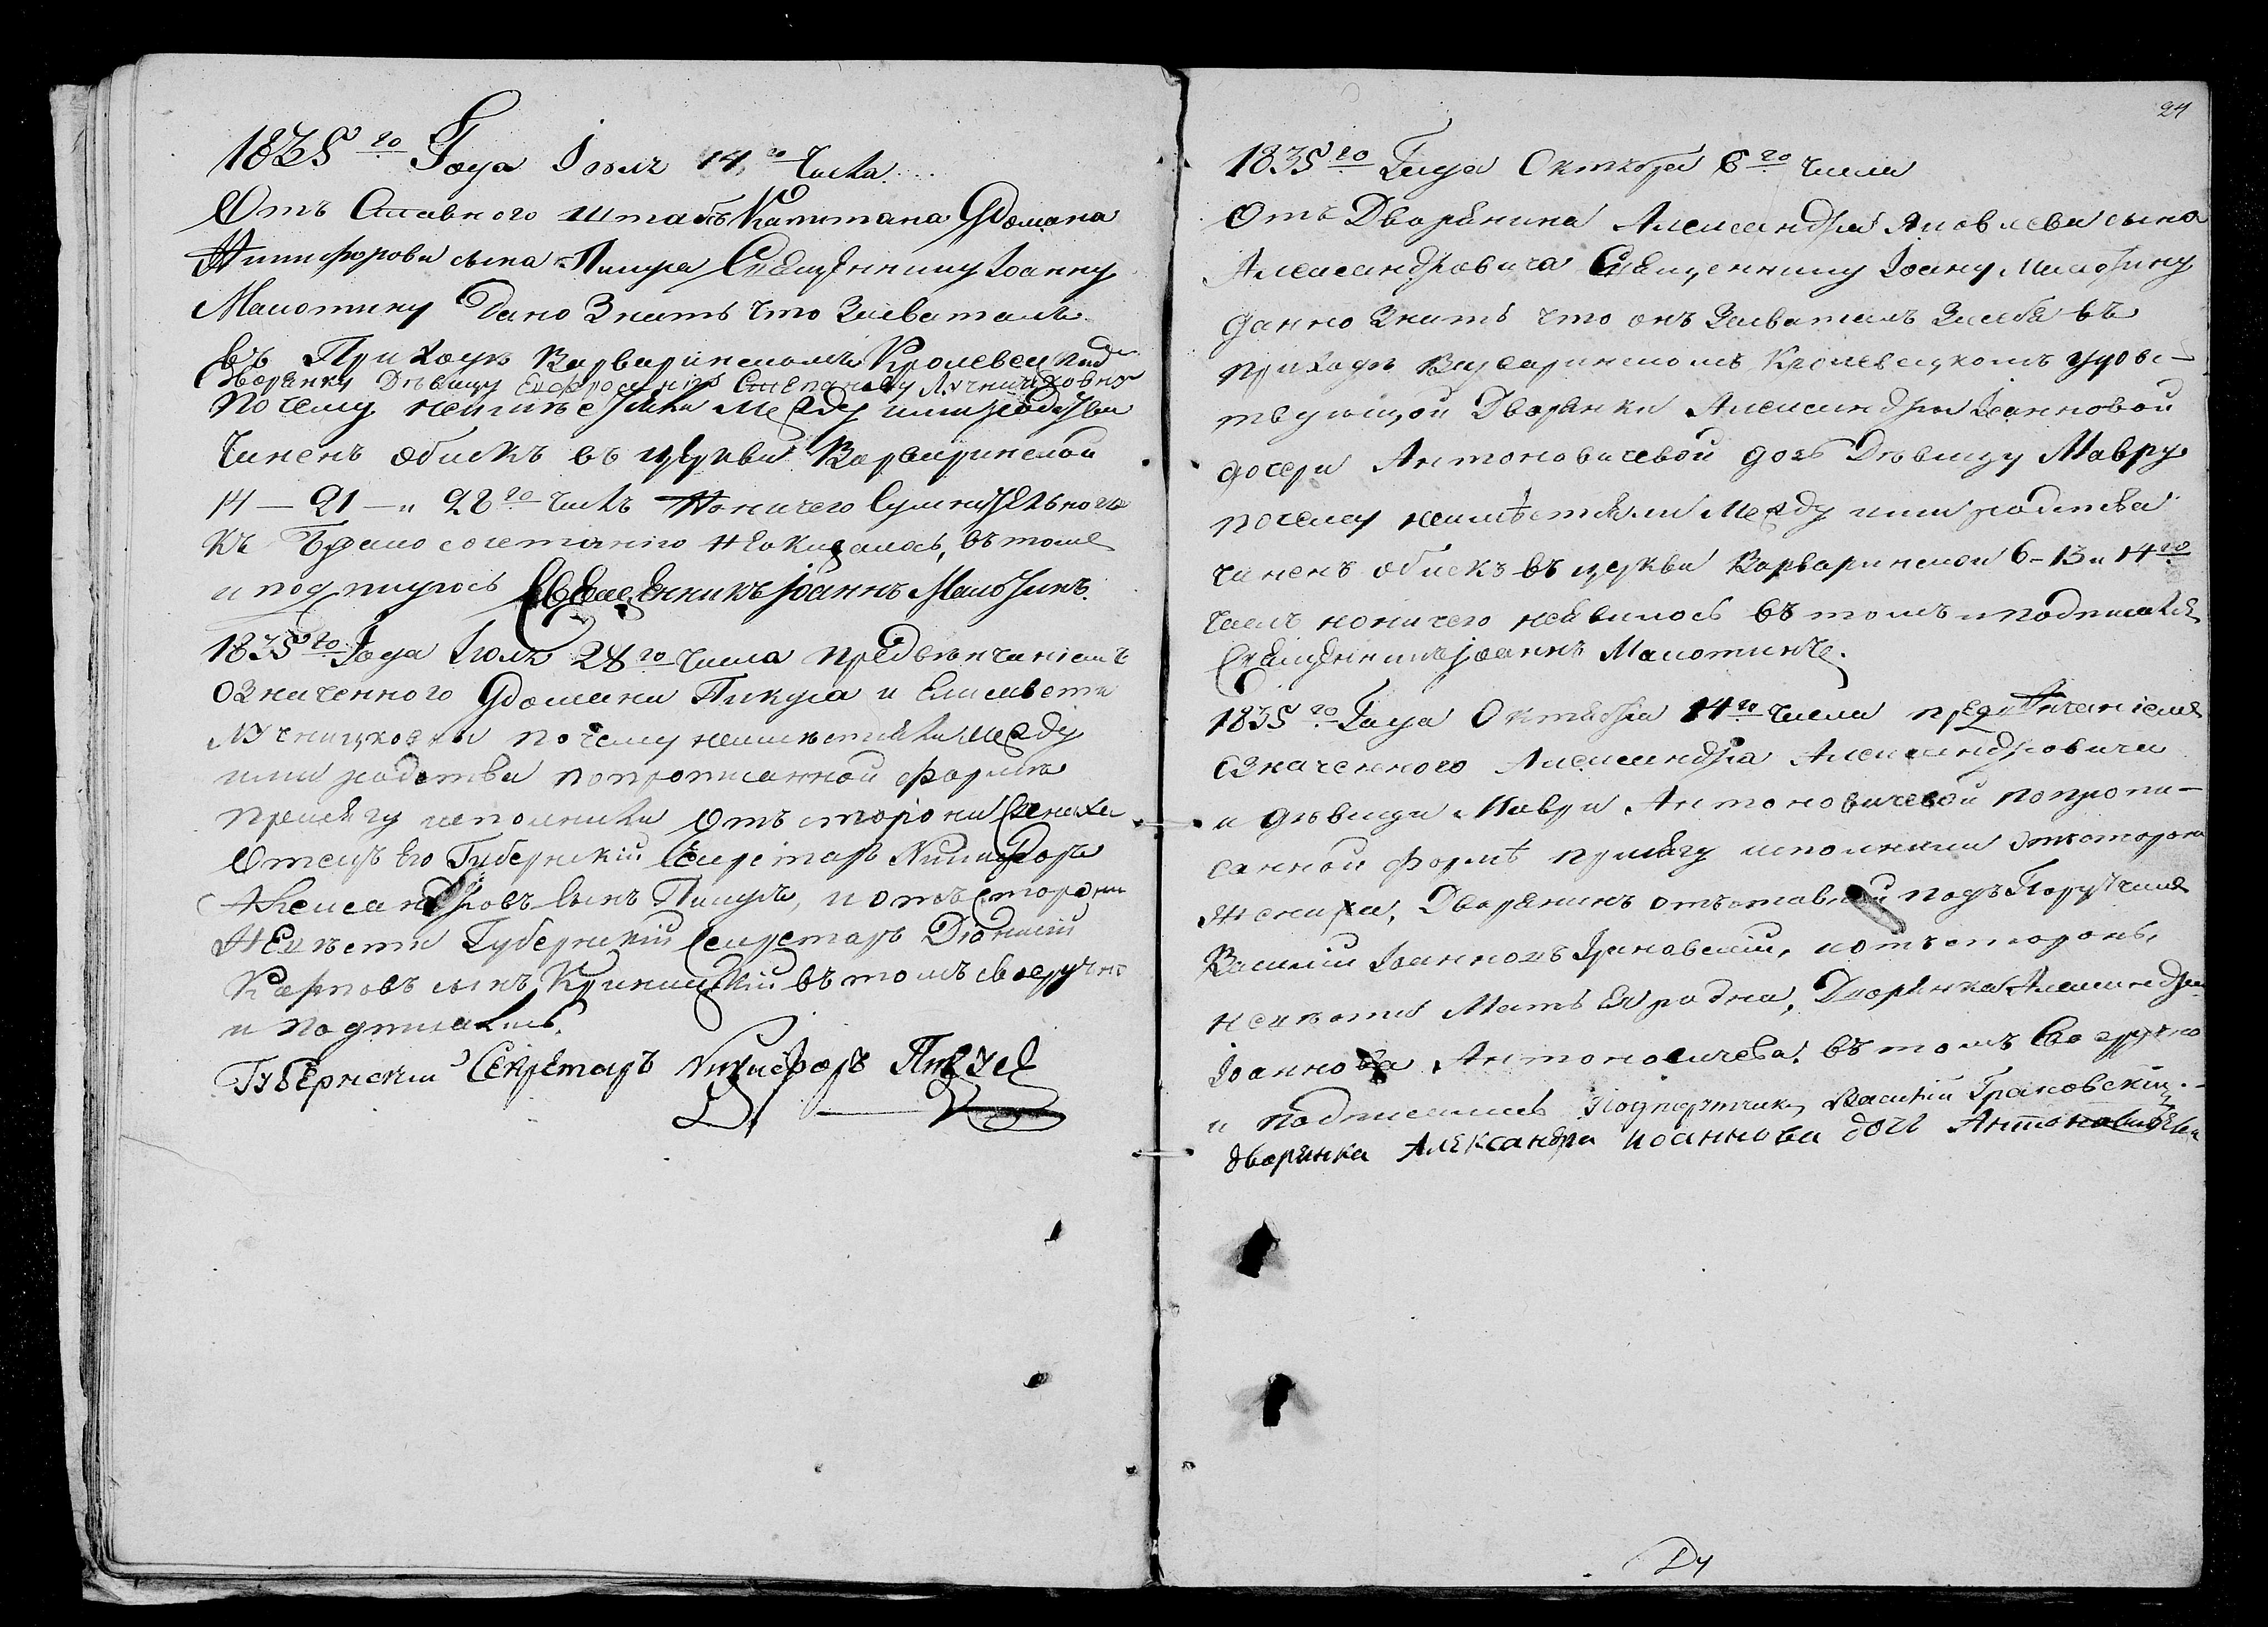 1835го Года Іюля 14го Числа
Отъ Ставного Штабъ Капитана Фомана
Никифорова сына Пикуля Священнику Іоанну
Малютину Дано Знать что Засваталъ
въ Приходѣ Варваринскомъ Кролевец
Дворянку Дѣвицу Ефросинію Степанову Лучницковну
Почему неимѣетъли Между ими родства
Чиненъ обискъ въ церкви Варваринской
14 — 21 — и 28го Числъ Но ничего Сумнительного
Къ Бракосочетанію Неоказалось, въ томъ
и подпинуюсь Священникъ Іоаннъ Малютинъ.
1835го Года Іюля 28го Числа предвѣнчаніемъ
Означенного Фомана Пикула и Елисавети
Лучницковны почему неимѣетъли Между
ими родства попрописанной формѣ
присягу исполнили Отъ сторони Жениха
Отецъ Его Губернскій Секретарь Никифоръ
Александровъ сынъ Пикуль, и отъ сторони
Невѣсти Губернскій Секретарь
Карповъ сынъ Криницкій въ томъ своеручно
и подписались.
Губернский Секретаръ Никифоръ Пикуль
24
1835го Года Октября 6го Числа
Отъ Дворянина Александра Яковлева сына
Александровича Священнику Іоану Малютину
данно Знать что онъ Засваталъ Засебя въ
приходѣ Варваринскомъ Кролевецкомъ
Дворянки Александры Іоанновой
дочери Антоновичевой дочь Дѣвицу Мавру
почему неимѣетъли Между ими родства
чиненъ обискъ въ церкви Варваринской 6 – 13 и 14го
Числъ ноничего неявилось въ томъ и подписался
Священникъ Іоаннъ Малютинъ.
1835го Года Октября 14го Числа предвѣнчаніемъ
означенного Александра Александровича
и дѣвици Маври Антоновичевой попропи-
санной формѣ присягу исполнили отъсторони
Жениха, Дворянинъ отъставной подъПоручикъ
Василій Іоанновъ Грановскій, иотъ сторонъ
невѣсти Мать Ея родна, Дворянка Александра
Іоаннова Антоновичева. въ томъ Своеручно
и подписались Подпорутчикъ Василій Грановскій.
дворянка Александра иоаннова дочь Антоновичева
24